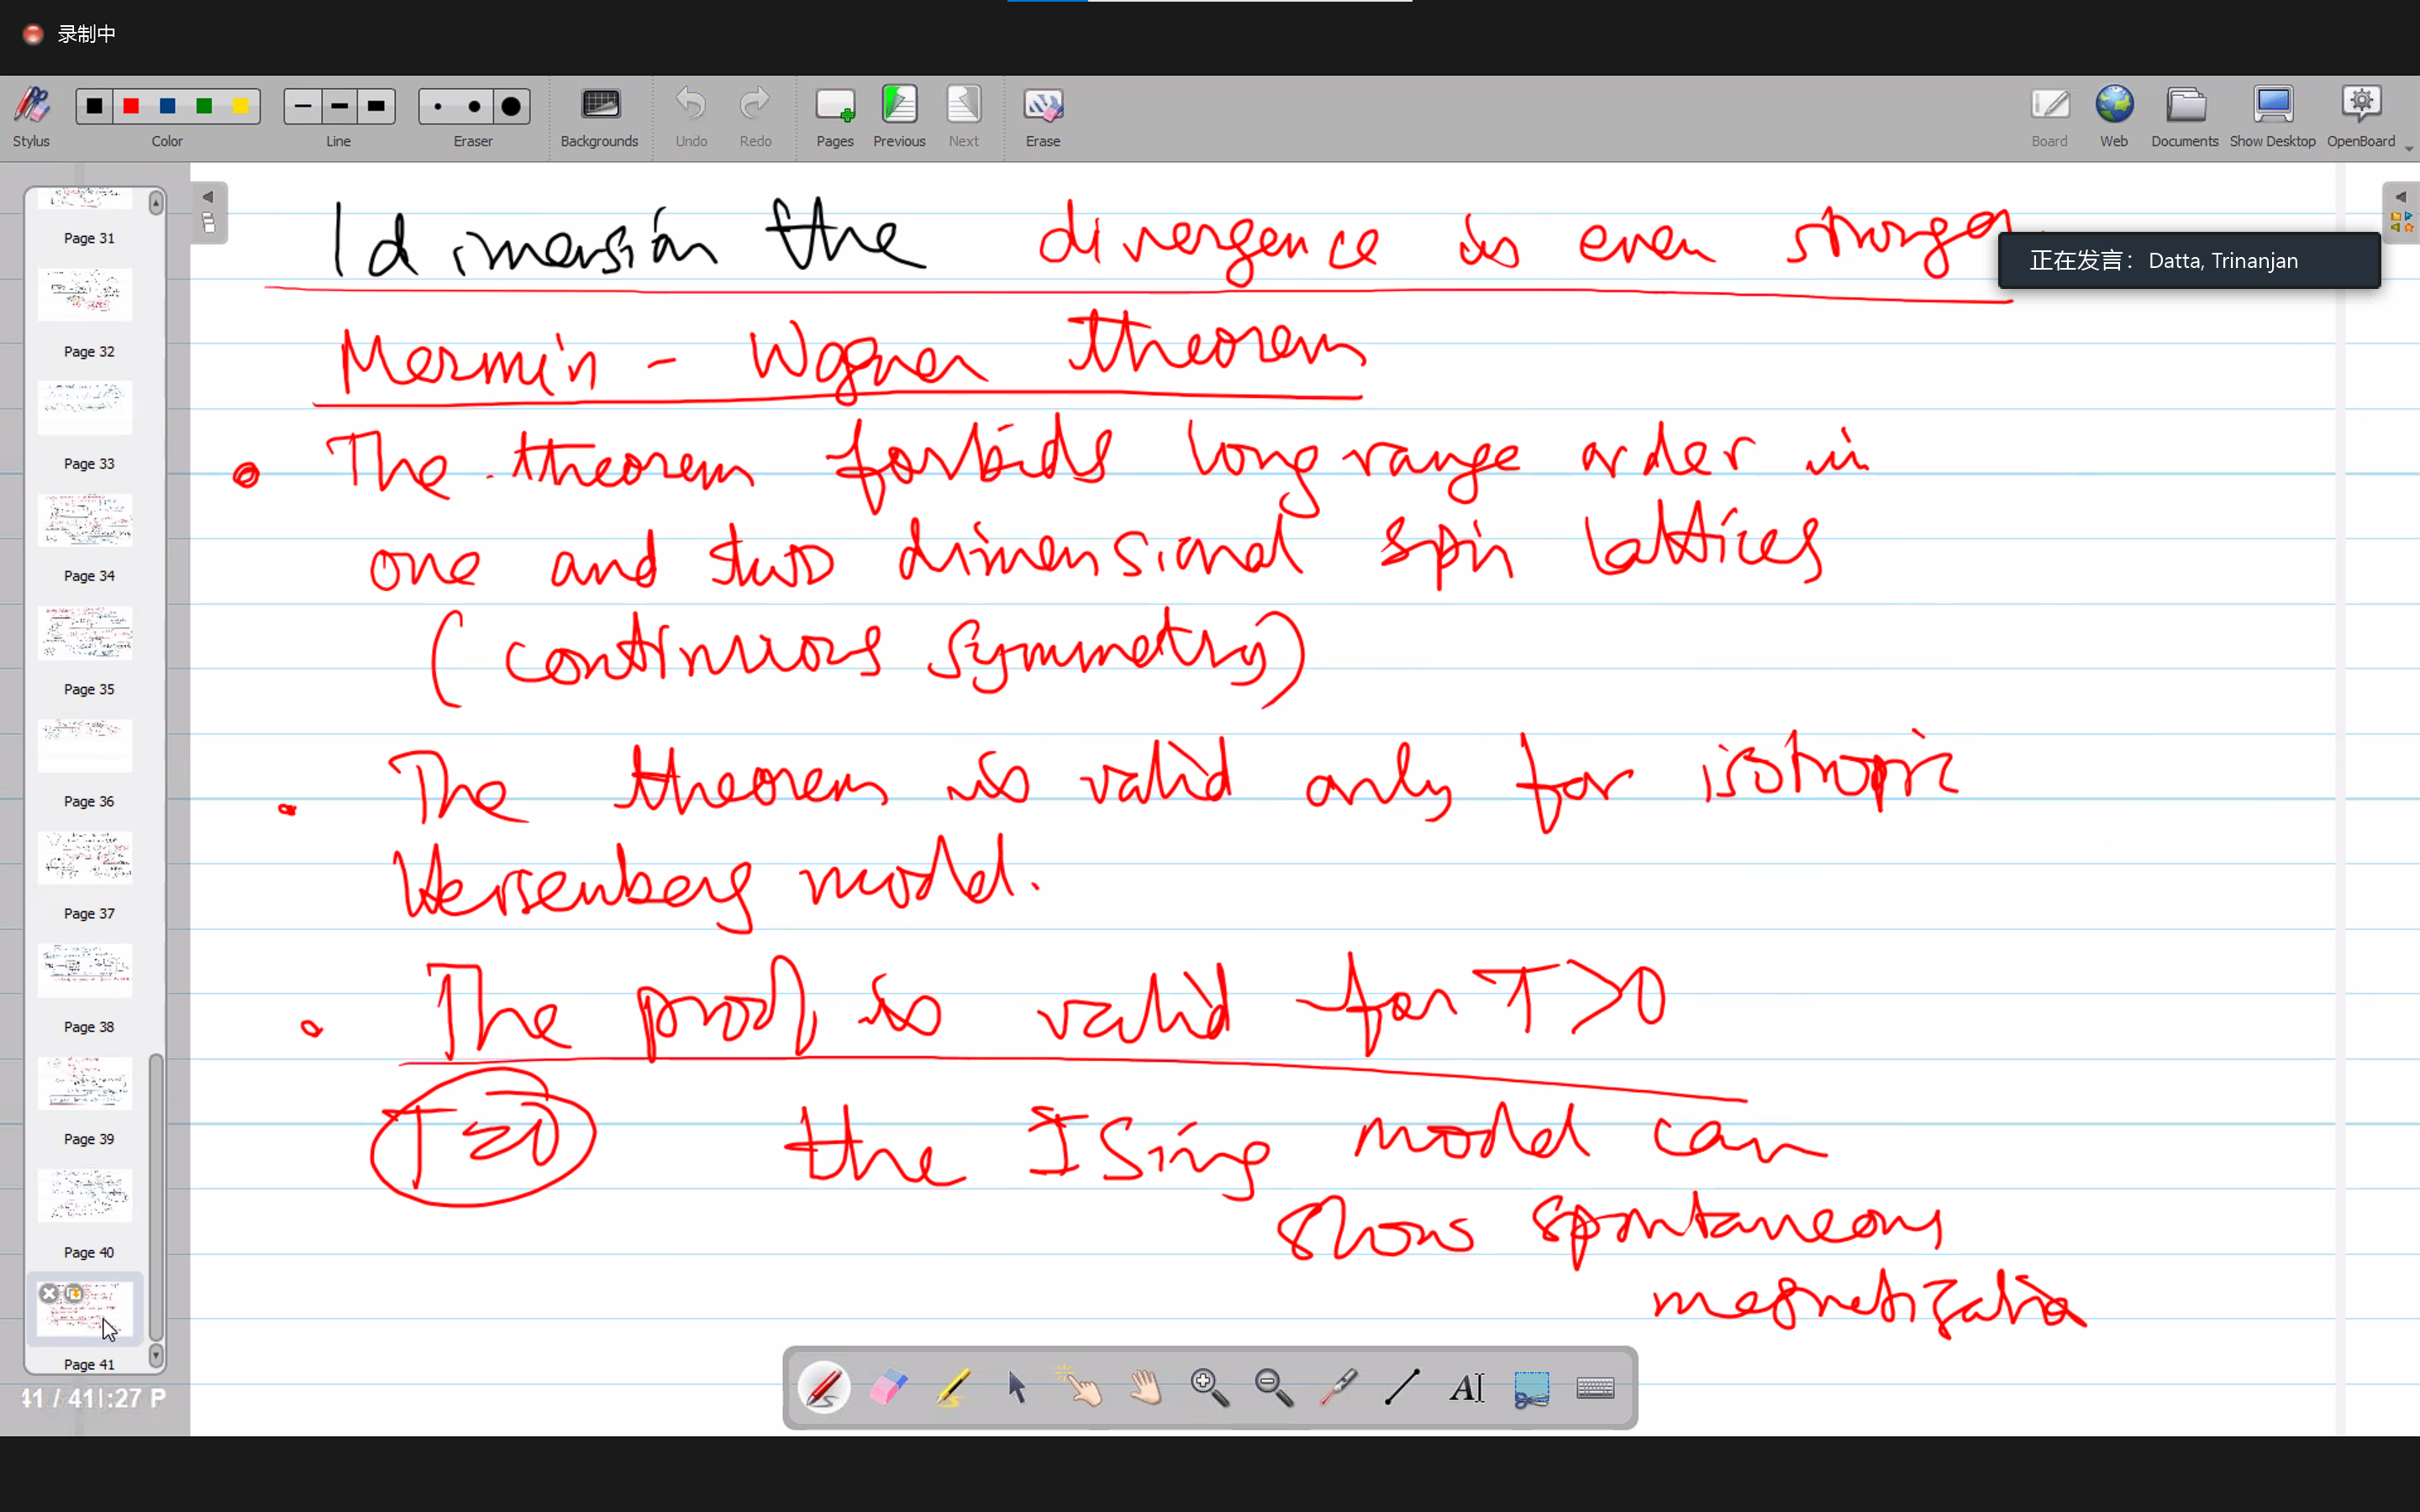 录制中
Stylus
Color
Line
Eraser
Backgrounds
Undo
Redo
Pages
Previous
Next
Erase
Board
Web
Documents
Show Desktop
OpenBoard
正在发言： Datta, Trinanjan
Page 31
Page 32
Page 33
Page 34
Page 35
Page 36
Page 37
Page 38
Page 39
Page 40
Page 41
41 / 41
:27 P
1dimension the divergence is even stronger
Mermin - Wagner theorem
• The theorem forbids long range order in
one and two dimensional spin lattices
(continuous symmetry)
• The theorem is valid only for isotropic
Heisenberg model.
• The proof is valid for T>0
T=0 the ISing model can
shows spontaneous
magnetization
AI